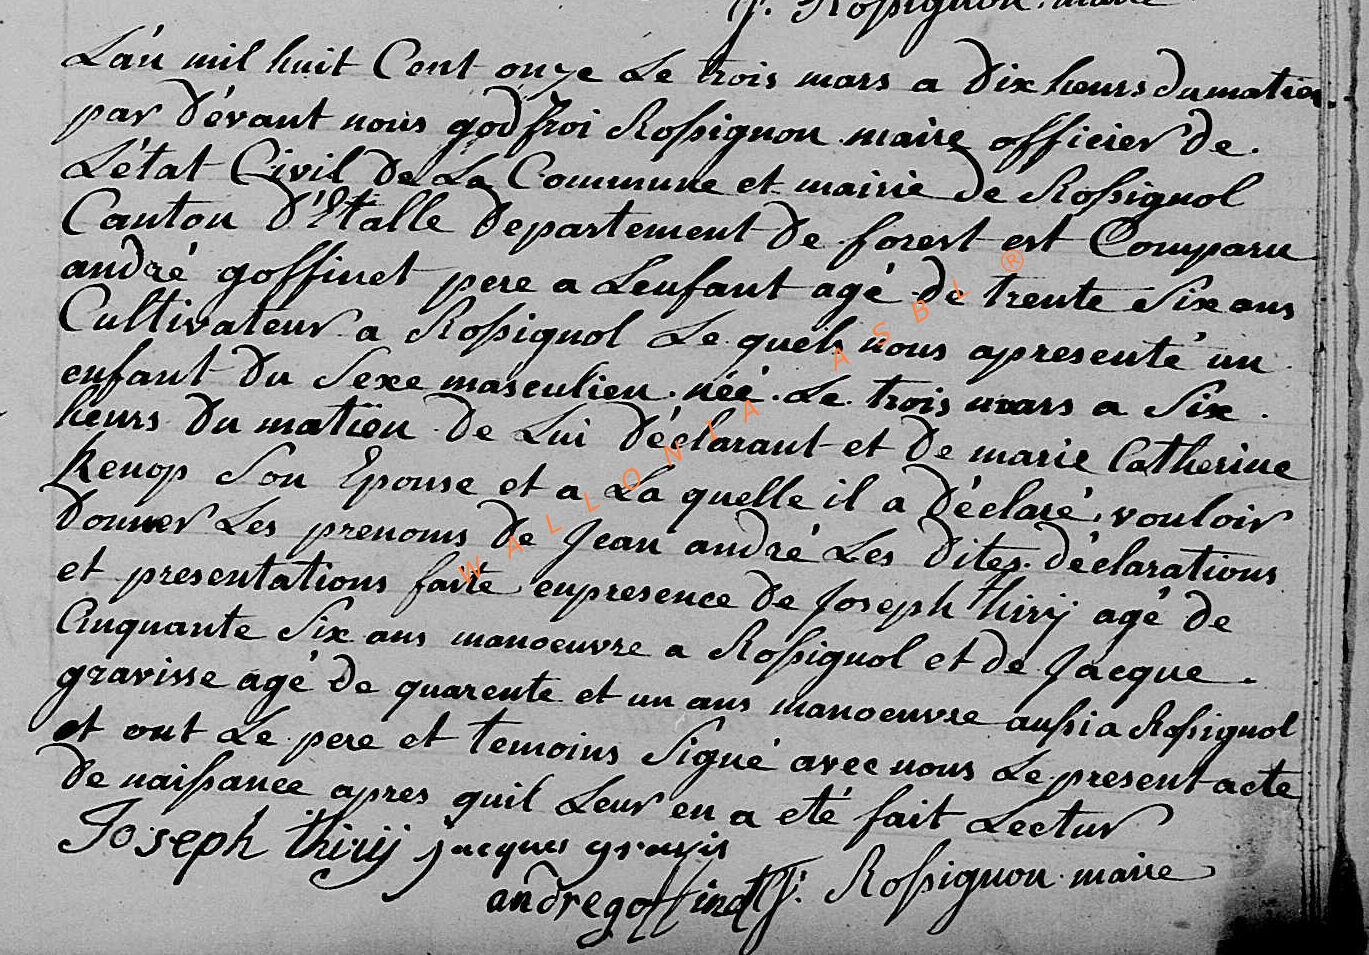 f. Rossignon. maire
L'án mil huit Cent onze Le trois mars a Dix heurs du matien.
par dévant nous godfroi Rossignon maire officier de.
L'état Civil de La Commune et mairie de Rossignol
Canton d'Etalle departement de forest est Comparu
andré goffinet pere a Lenfant agé de trente Six ans
Cultivateur a Rossignol Le quel nous apresenté un
enfant du Sexe masculien. néé. Le trois mars a Six.
heurs du matïen de Lui déclarant et de marie Catherine
Renop Son Epouse et a La quelle il a déclaré, vouloir
donner Les prenoms de Jean andré Les dites. déclarations
et presentations faite enpresence de Joseph thirÿ agé de
Cinquante Six ans manoeuvre a Rossignol et de Jacque.
gravisse agé de quarente et un ans manoeuvre aussi a Rossignol
et ont Le pere et temoins Signé avec nous Le present acte
de naissance apres quil Leur en a eté fait Lectur
Joseph thirÿ jacques gravis
andre goffinet f. Rossignon. maire
WALLONIA ASBL ®